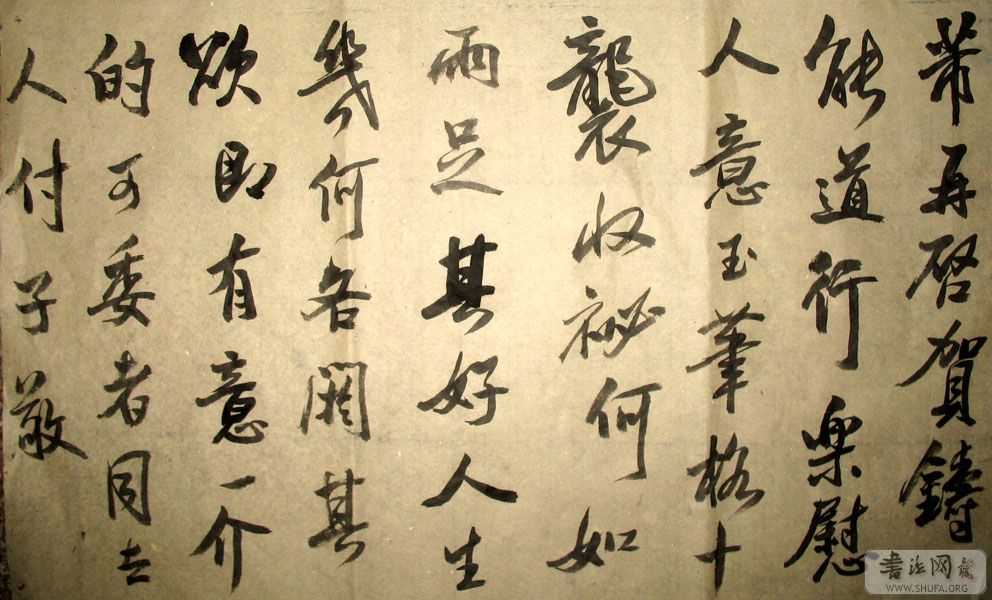 芾再啓賀鑄
能道行樂慰
人意玉筆格十
襲收祕何如
兩足其好人生
幾何各閼其
欲即有意一介
的可委者同去
人付子敬
書法网
WWW.SHUFA.ORG